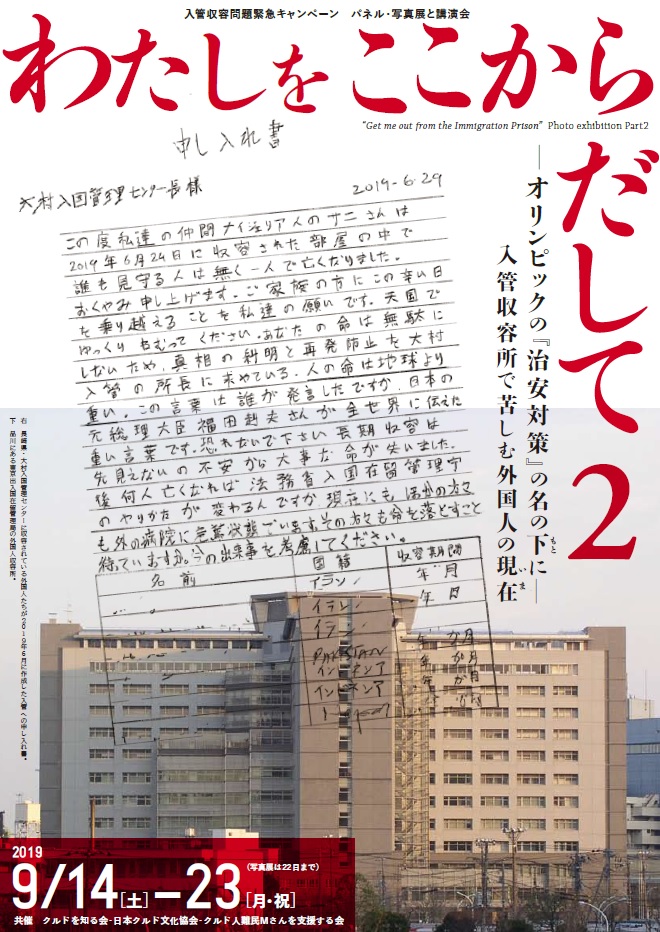 入管収容問題緊急キャンペーン　パネル・写真展と講演会
わたしを ここから
だして 2
“Get me out from the Immigration Prison” Photo exhibition Part2
―オリンピックの『治安対策』の名の下に―
もと
入管収容所で苦しむ外国人の現在
いま
申し入れ書
大村入国管理センター長様
2019-6.29
この度私達の仲間ナイジェリア人のサニさんは
2019年6月24日に収容された部屋の中で
誰も見守る人は無く一人で亡くなりました。
おくやみ申し上げます。ご家族の方にこの辛い日
を乗り越えることを私達の願いです。天国で
ゆっくりねむってください。あなたの命は無駄に
しないため、真相の糾明と再発防止を大村
入管の所長に求めている。人の命は地球より
重い。この言葉は誰が発言したですか、日本の
元総理大臣福田赳夫さんが全世界に伝えた
重い言葉です。恐れないで下さい長期収容は
先見えないの不安から大事な命が失いました。
後何人亡くなれば法務省入国在留管理庁
のやりかたが変わるんですか、現在にもほかの方々
も外の病院に危篤状態でいます。その方々も命を落とすこと
待っていますか。の出来事を考慮してください。
名前 国籍 収容期間
イラン 年 月
イラン 年
イラン
PAKISTAN
インドネシア
右　長崎県・大村入国管理センターに収容されている外国人たちが2019年6月に作成した入管への申し入れ書。
下　品川にある東京出入国在留管理局の外国人収容所。
2019
9/14[土]–23[月・祝]
（写真展は22日まで）
共催　クルドを知る会-日本クルド文化協会-クルド人難民Mさんを支援する会